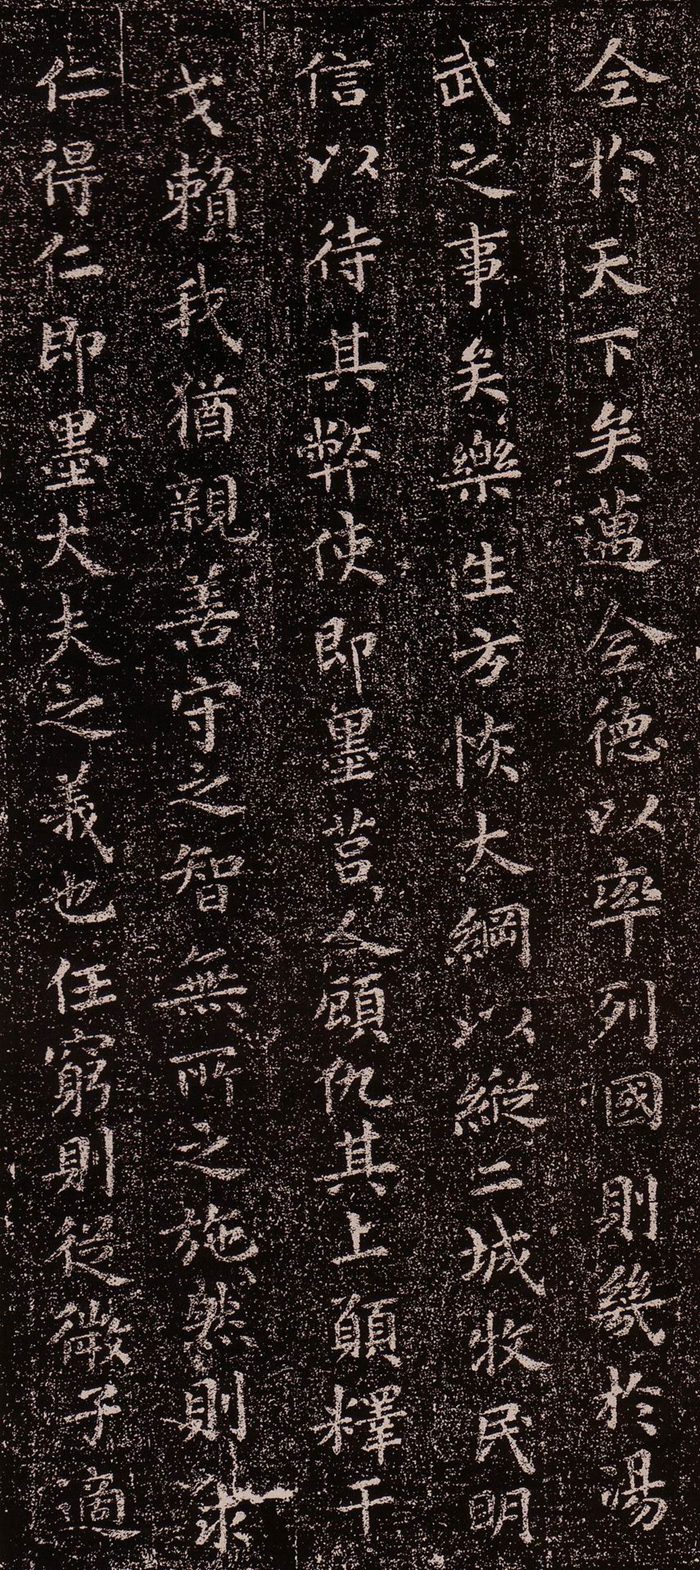 令於天下矣邁令德以率列國則幾於湯
武之事矣樂生方恢大綱以縱二城收民明
信以待其弊使即墨莒人顧仇其上願釋干
戈賴我猶親善守之智無所之施然則求
仁得仁即墨大夫之義也任窮則從微子適